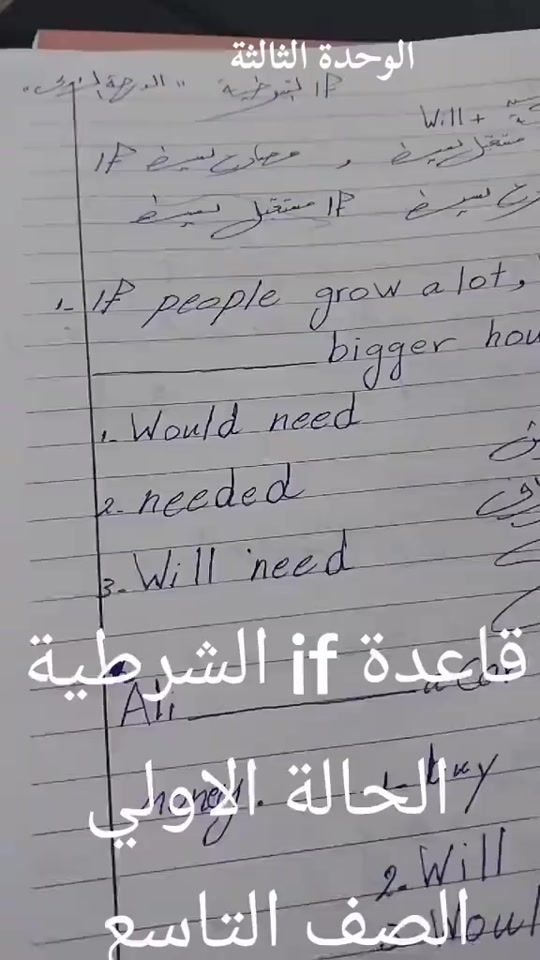 الوحدة الثالثة
IF الشرطية
Will +
IF مضارع بسيط , مستقبل بسيط
مستقبل بسيط IF بسيط
1- IF people grow a lot,
__________ bigger hou
1. Would need
2. needed
3. Will need
قاعدة if الشرطية
Ali __________ a car
الحالة الاولي
money. 1- buy
2. Will
الصف التاسع
Woul